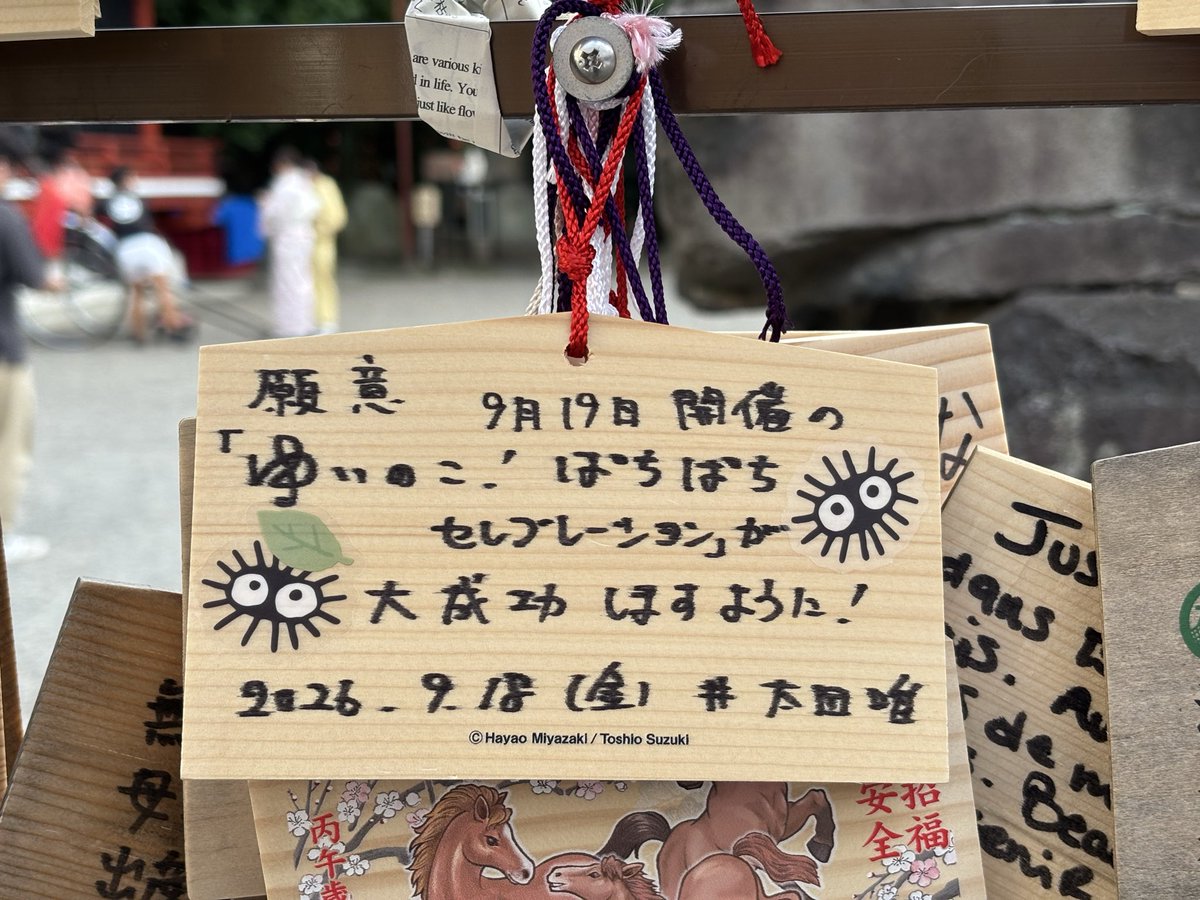 are various k
d in life. You
just like flo
願意 9月19日 開催の
「ゆいのこ! ぱちぱち
セレブレーション」が
大成功 しますように!
2026.9.18(金) # 太田唯
© Hayao Miyazaki / Toshio Suzuki
Jus
dans
de
Bea
無
母
出産
丙午歳
招福
安全